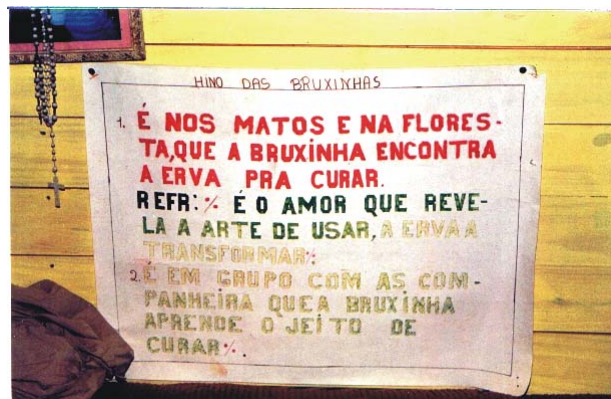 HINO DAS BRUXINHAS
1. É NOS MATOS E NA FLORES-
TA, QUE A BRUXINHA ENCONTRA
A ERVA PRA CURAR.
REFR: ٪ É O AMOR QUE REVE-
LA A ARTE DE USAR, A ERVA A
TRANSFORMAR ٪
2. É EM GRUPO COM AS COM-
PANHEIRA QUE A BRUXINHA
APRENDE O JEITO DE
CURAR ٪.